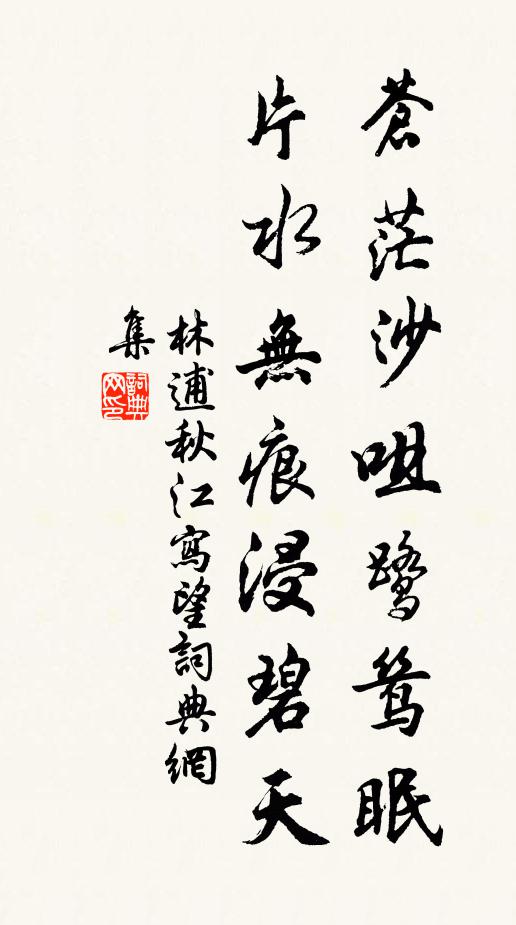 蒼茫沙咀鷺鷥眠
片水無痕浸碧天
林逋秋江寫望詞典網
集
詞典
网印